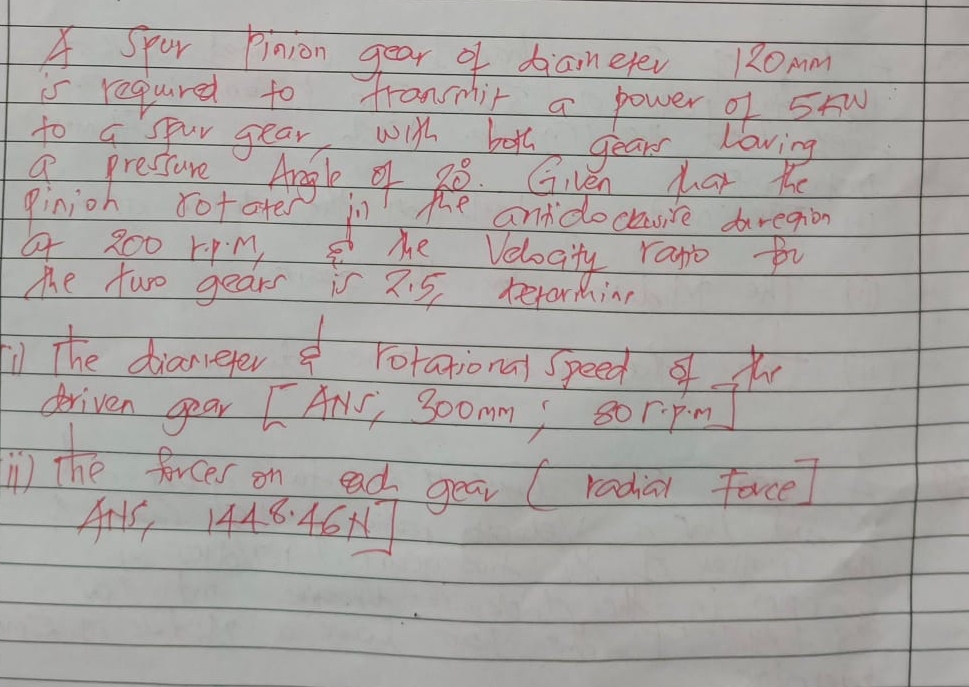 A spur Pinion gear of diameter 120mm
is required to transmit a power of 5kW
to a spur gear, with both gears having
a pressure Angle of 20°. Given that the
Pinion rotates in the anticlockwise
at 200 r.p.m, & the Velocity ratio for
the two gears is 2.5, determine
i) The diameter & rotational speed of the
driven gear [ANS, 300mm; 80 r.p.m]
ii) The forces on each gear [radial force]
ANS, 1448.46N]